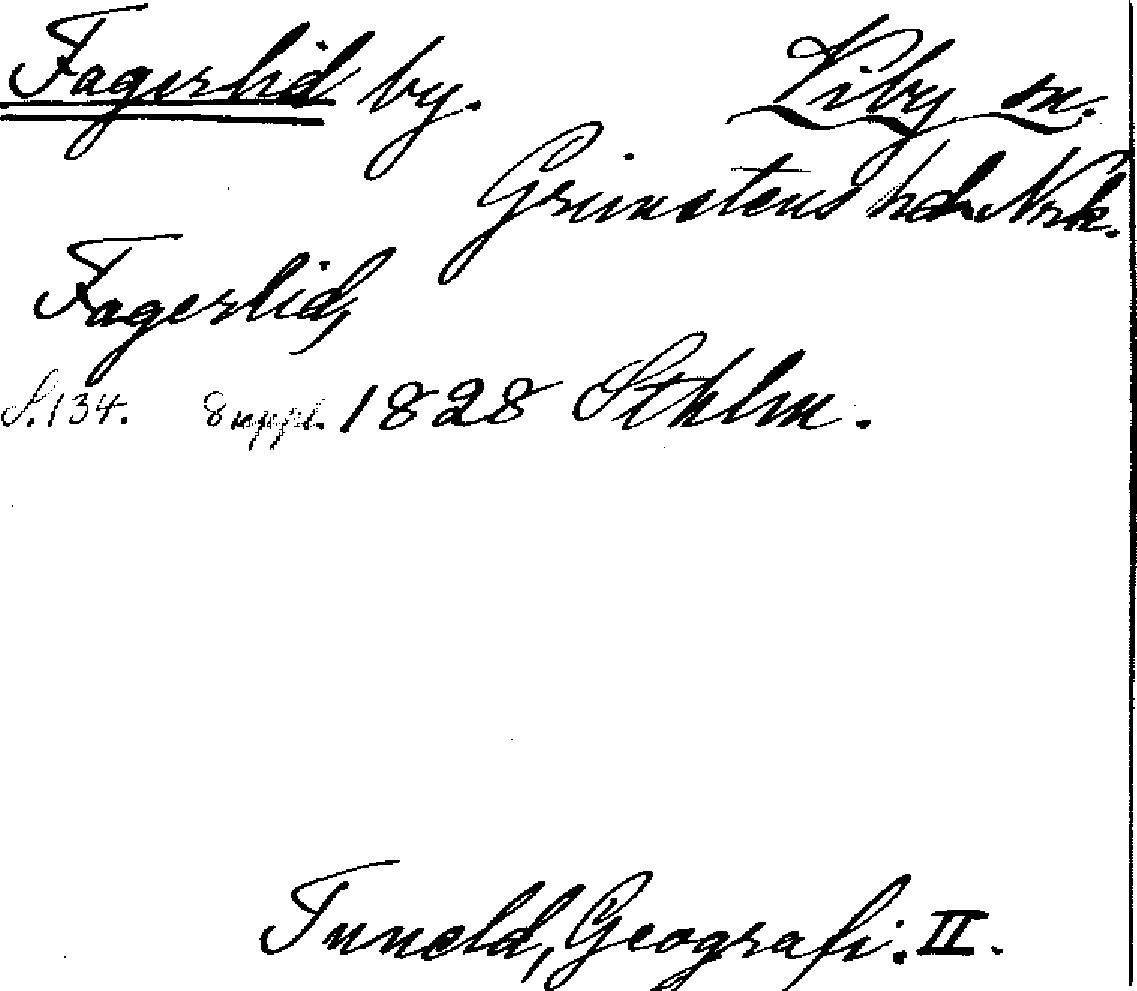 Fagerlid by. Viby sn.
Grimstens hd. Nrk.
Fagerlid,
S. 134. Suppl. 1828 Sthlm.
Tuneld, Geografi. II.